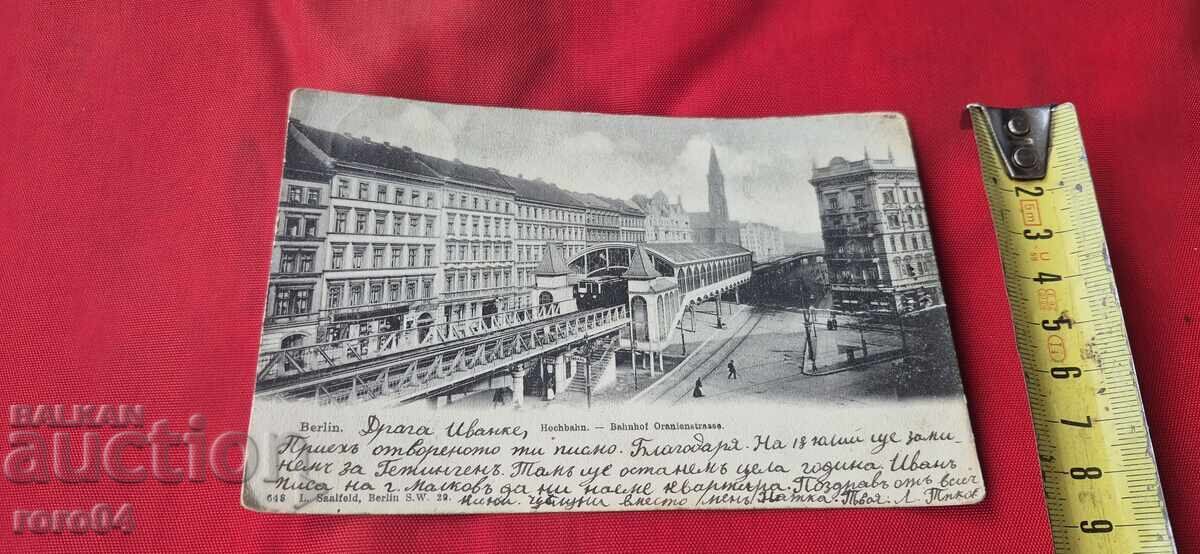 Berlin. Драга Иванке, Hochbahn. — Bahnhof Oranienstrasse.
Приехъ отвореното ти писмо. Благодаря. На 18 юлий ще зами-
немъ за Гетингенъ. Тамъ ще останемъ цела година. Иванъ
писа на г. Малковъ да ни наеме квартира. Поздравъ отъ всич
648 L. Saalfeld, Berlin S.W. 29. вместо менъ Твоя Л.
BALKAN
auction
roro84
2
3
4
5
6
7
8
9